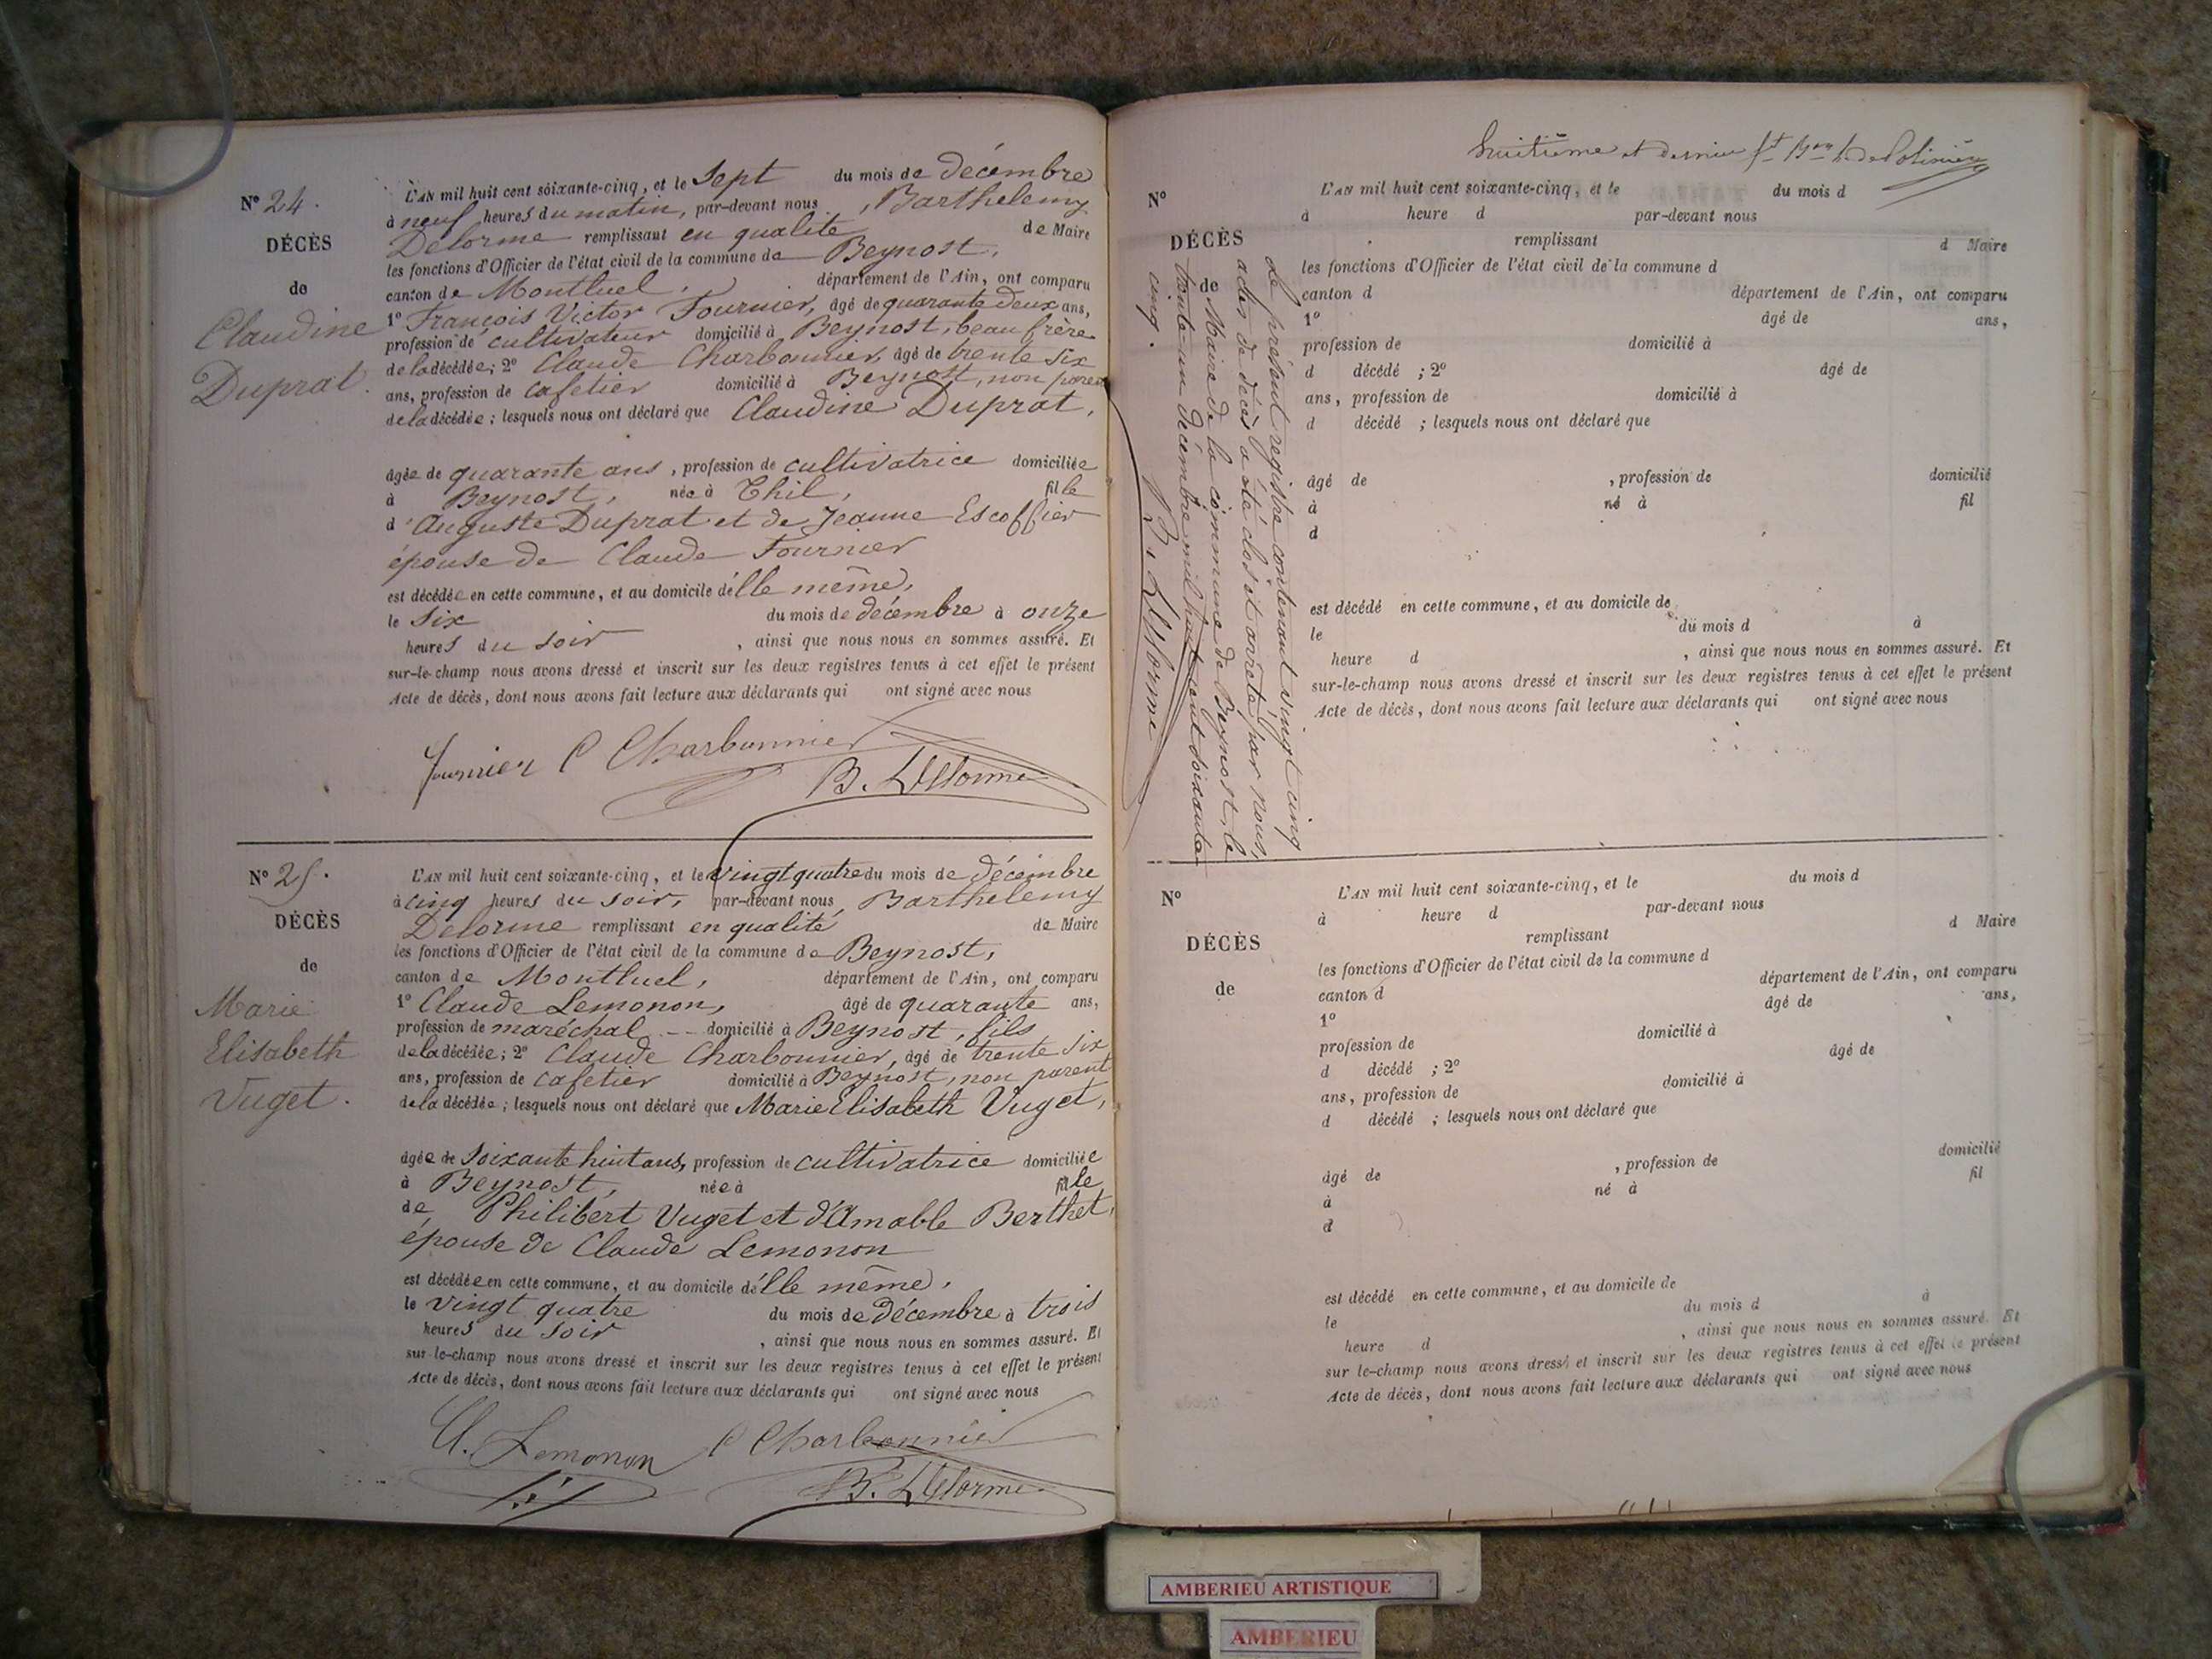 N° 24.
DÉCÈS
de
Claudine
Duprat.
L'AN mil huit cent soixante-cinq, et le Sept du mois de décembre
à neuf heures du matin, par-devant nous, Barthelemy
Delorme remplissant en qualité de Maire
les fonctions d'Officier de l'état civil de la commune de Beynost,
canton de Montluel, département de l'Ain, ont comparu
1° François Victor Fournier, âgé de quarante deux ans,
profession de cultivateur domicilié à Beynost, beau frère
de la décédée; 2° Claude Charbonnier, âgé de trente six
ans, profession de cafetier domicilié à Beynost, non parent
de la décédée; lesquels nous ont déclaré que Claudine Duprat,
âgée de quarante ans, profession de cultivatrice domiciliée
à Beynost, née à Thil, fille
d'Auguste Duprat et de Jeanne Escoffier
épouse de Claude Fournier
est décédée en cette commune, et au domicile d'elle même,
le Six du mois de décembre à onze
heures du soir, ainsi que nous nous en sommes assuré. Et
sur-le-champ nous avons dressé et inscrit sur les deux registres tenus à cet effet le présent
Acte de décès, dont nous avons fait lecture aux déclarants qui ont signé avec nous
Fournier C Charbonnier
B. Delorme
N° 25.
DÉCÈS
de
Marie
Elisabeth
Vuget.
L'AN mil huit cent soixante-cinq, et le vingt quatre du mois de décembre
à cinq heures du soir, par-devant nous, Barthelemy
Delorme remplissant en qualité de Maire
les fonctions d'Officier de l'état civil de la commune de Beynost,
canton de Montluel, département de l'Ain, ont comparu
1° Claude Lemonon, âgé de quarante ans,
profession de maréchal domicilié à Beynost, fils
de la décédée; 2° Claude Charbonnier, âgé de trente six
ans, profession de cafetier domicilié à Beynost, non parent
de la décédée; lesquels nous ont déclaré que Marie Elisabeth Vuget,
âgée de soixante huit ans, profession de cultivatrice domiciliée
à Beynost, née à fille
de Philibert Vuget et d'Amable Berthet,
épouse de Claude Lemonon
est décédée en cette commune, et au domicile d'elle même,
le vingt quatre du mois de décembre à trois
heures du soir, ainsi que nous nous en sommes assuré. Et
sur-le-champ nous avons dressé et inscrit sur les deux registres tenus à cet effet le présent
Acte de décès, dont nous avons fait lecture aux déclarants qui ont signé avec nous
Cl. Lemonon C Charbonnier
B. Delorme
huitième et dernier
N°
DÉCÈS
de
Le présent registre contenant vingt cinq
actes de décès a été clos et arrêté par nous,
Maire de la commune de Beynost, le
trente-un décembre mil huit cent soixante
cinq.
B. Delorme
L'AN mil huit cent soixante-cinq, et le du mois d
à heure d par-devant nous
remplissant d Maire
les fonctions d'Officier de l'état civil de la commune d
canton d département de l'Ain, ont comparu
1° âgé de ans,
profession de domicilié à
d décédé ; 2° âgé de
ans, profession de domicilié à
d décédé ; lesquels nous ont déclaré que
âgé de , profession de domicilié
à né à fil
d
est décédé en cette commune, et au domicile de
le du mois d à
heure d , ainsi que nous nous en sommes assuré. Et
sur-le-champ nous avons dressé et inscrit sur les deux registres tenus à cet effet le présent
Acte de décès, dont nous avons fait lecture aux déclarants qui ont signé avec nous
N°
DÉCÈS
de
L'AN mil huit cent soixante-cinq, et le du mois d
à heure d par-devant nous
remplissant d Maire
les fonctions d'Officier de l'état civil de la commune d
canton d département de l'Ain, ont comparu
1° âgé de ans,
profession de domicilié à
d décédé ; 2° âgé de
ans, profession de domicilié à
d décédé ; lesquels nous ont déclaré que
âgé de , profession de domicilié
à né à fil
d
est décédé en cette commune, et au domicile de
le du mois d à
heure d , ainsi que nous nous en sommes assuré. Et
sur le-champ nous avons dressé et inscrit sur les deux registres tenus à cet effet le présent
Acte de décès, dont nous avons fait lecture aux déclarants qui ont signé avec nous
AMBERIEU ARTISTIQUE
AMBERIEU